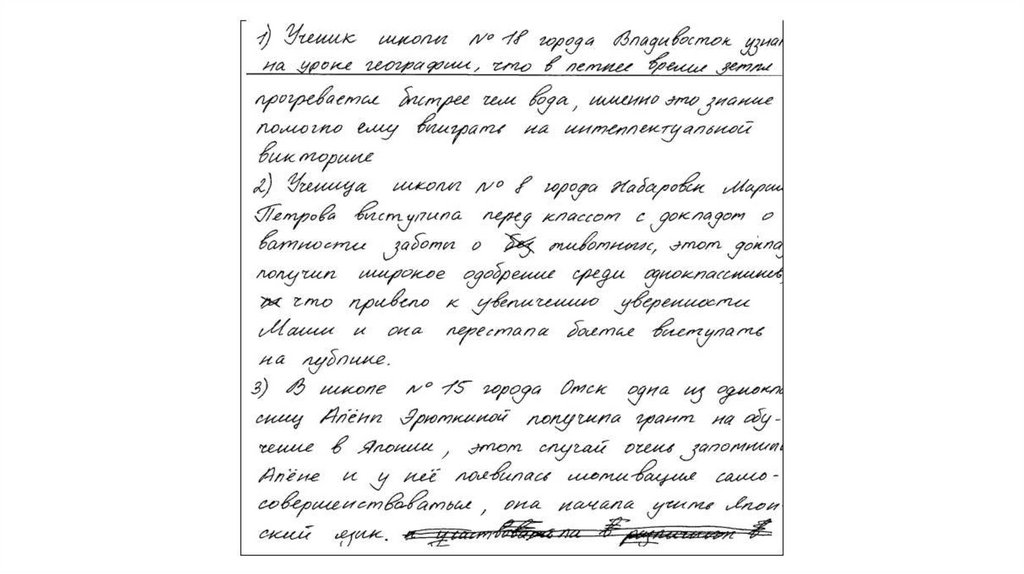 1) Ученик школы № 18 города Владивосток узнал
на уроке географии, что в летнее время земля
прогревается быстрее чем вода, именно это знание
помогло ему выиграть на интеллектуальной
викторине
2) Ученица школы № 8 города Хабаровск Мария
Петрова выступила перед классом с докладом о
важности заботы о без животных, этот докла
получил широкое одобрение среди одноклассников,
что привело к увеличению уверенности
Маши и она перестала бояться выступать
на публике.
3) В школе № 15 города Омск одна из однокла
сниц Алёны Эрюткиной получила грант на обу-
чение в Японии, этот случай очень запомнил
Алёне и у неё появилась мотивация само-
совершенствоваться, она начала учить япон
ский язык. и участвовала в различных в